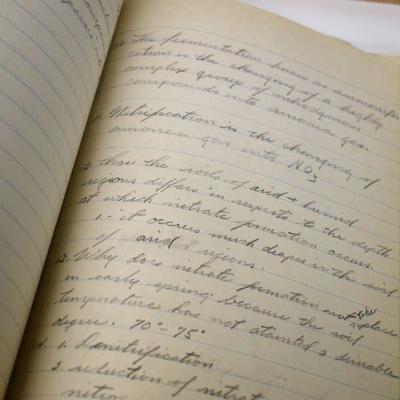 The fermentation known as ammonifi
cation is the changing of a highly
complex group of nitrogenous
compounds into amonia gas.
Nitrification is the changing of
amonia gas into NO3
2 how the soils of arid & humid
regions differs in respects to the depth
at which nitrate formation occurs.
1 - it occurs much deeper in the arid
of arid regions.
3. Why does nitrate formation not take place
in early spring because the soil
temperature has not atained a desirable
degree. 70° - 75°
4. 1. Denitrification
2. reduction of nitrat